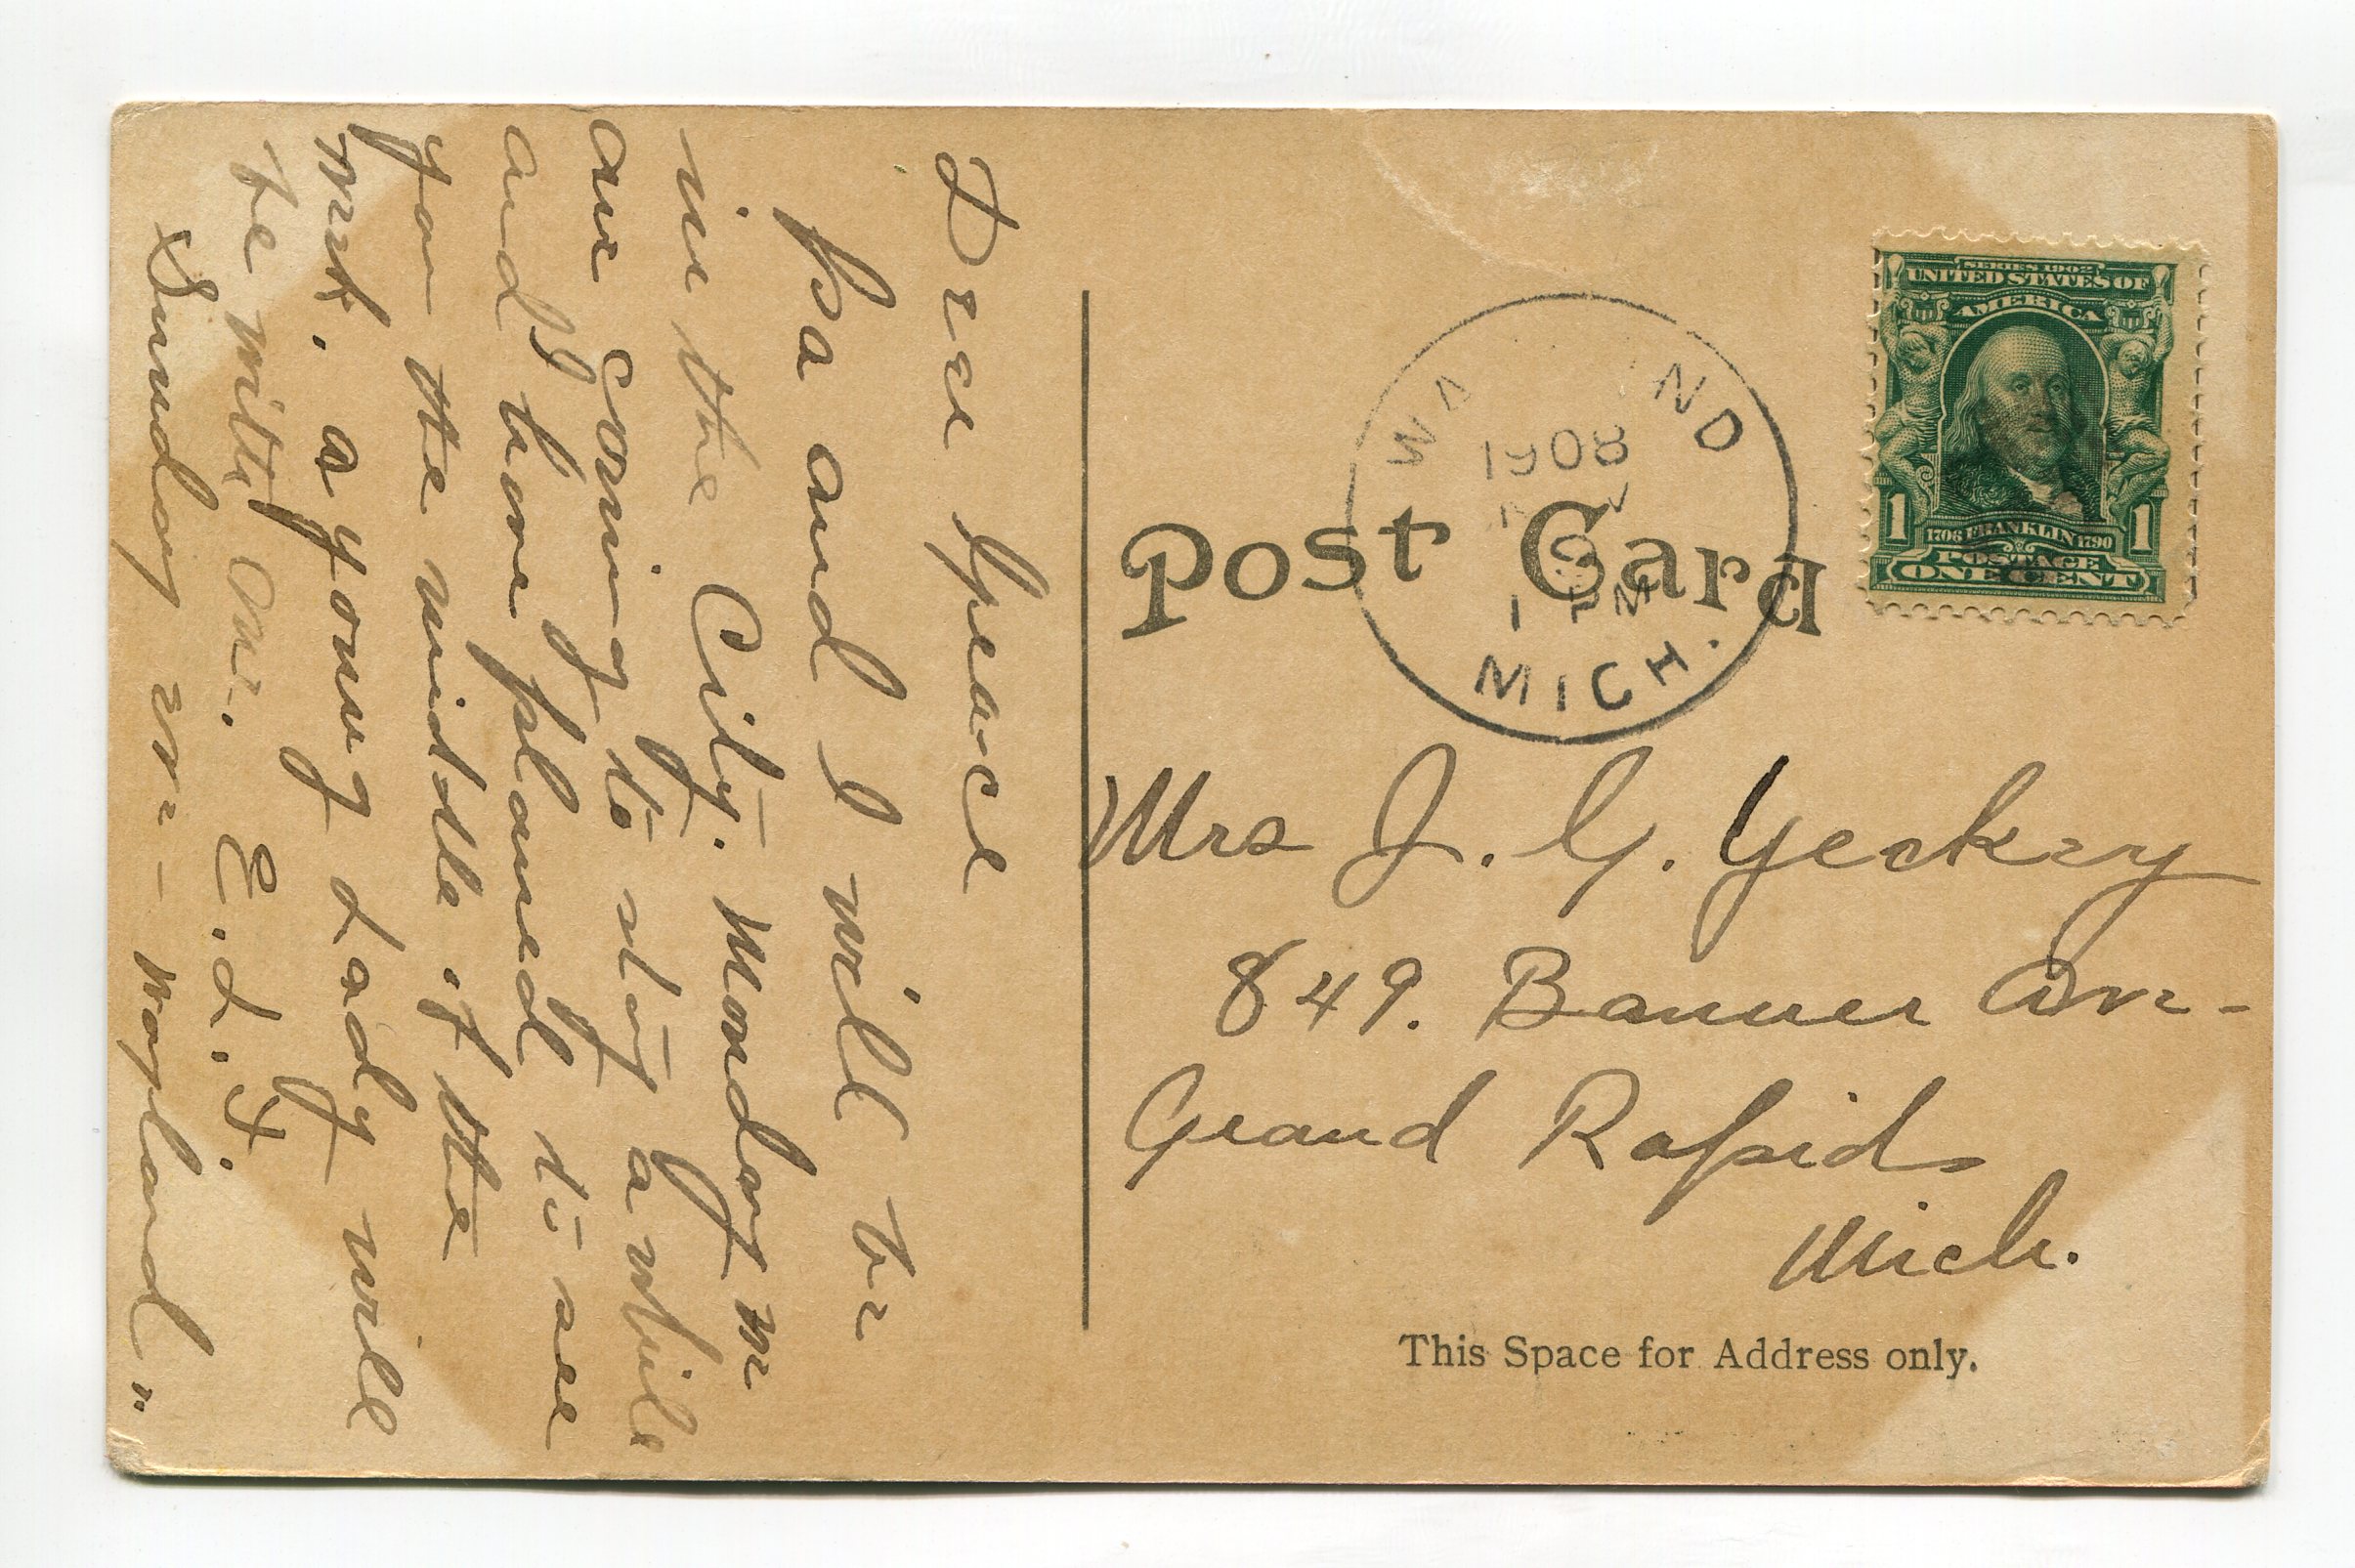 Dear Grace
Pa and I will be
in the City. Monday we
are coming to stay a while
and I have planned to see
you the middle of the
week. a young Lady will
be with me. E. L. Y.
Sunday eve - Wayland "
SERIES 1902
UNITED STATES OF
AMERICA
1706 FRANKLIN 1790
POSTAGE
1 ONE CENT 1
WA ND
1908
1 PM
MICH.
Post Card
Mrs J. G. Yeckey
849. Banner Ave-
Grand Rapids
Mich.
This Space for Address only.